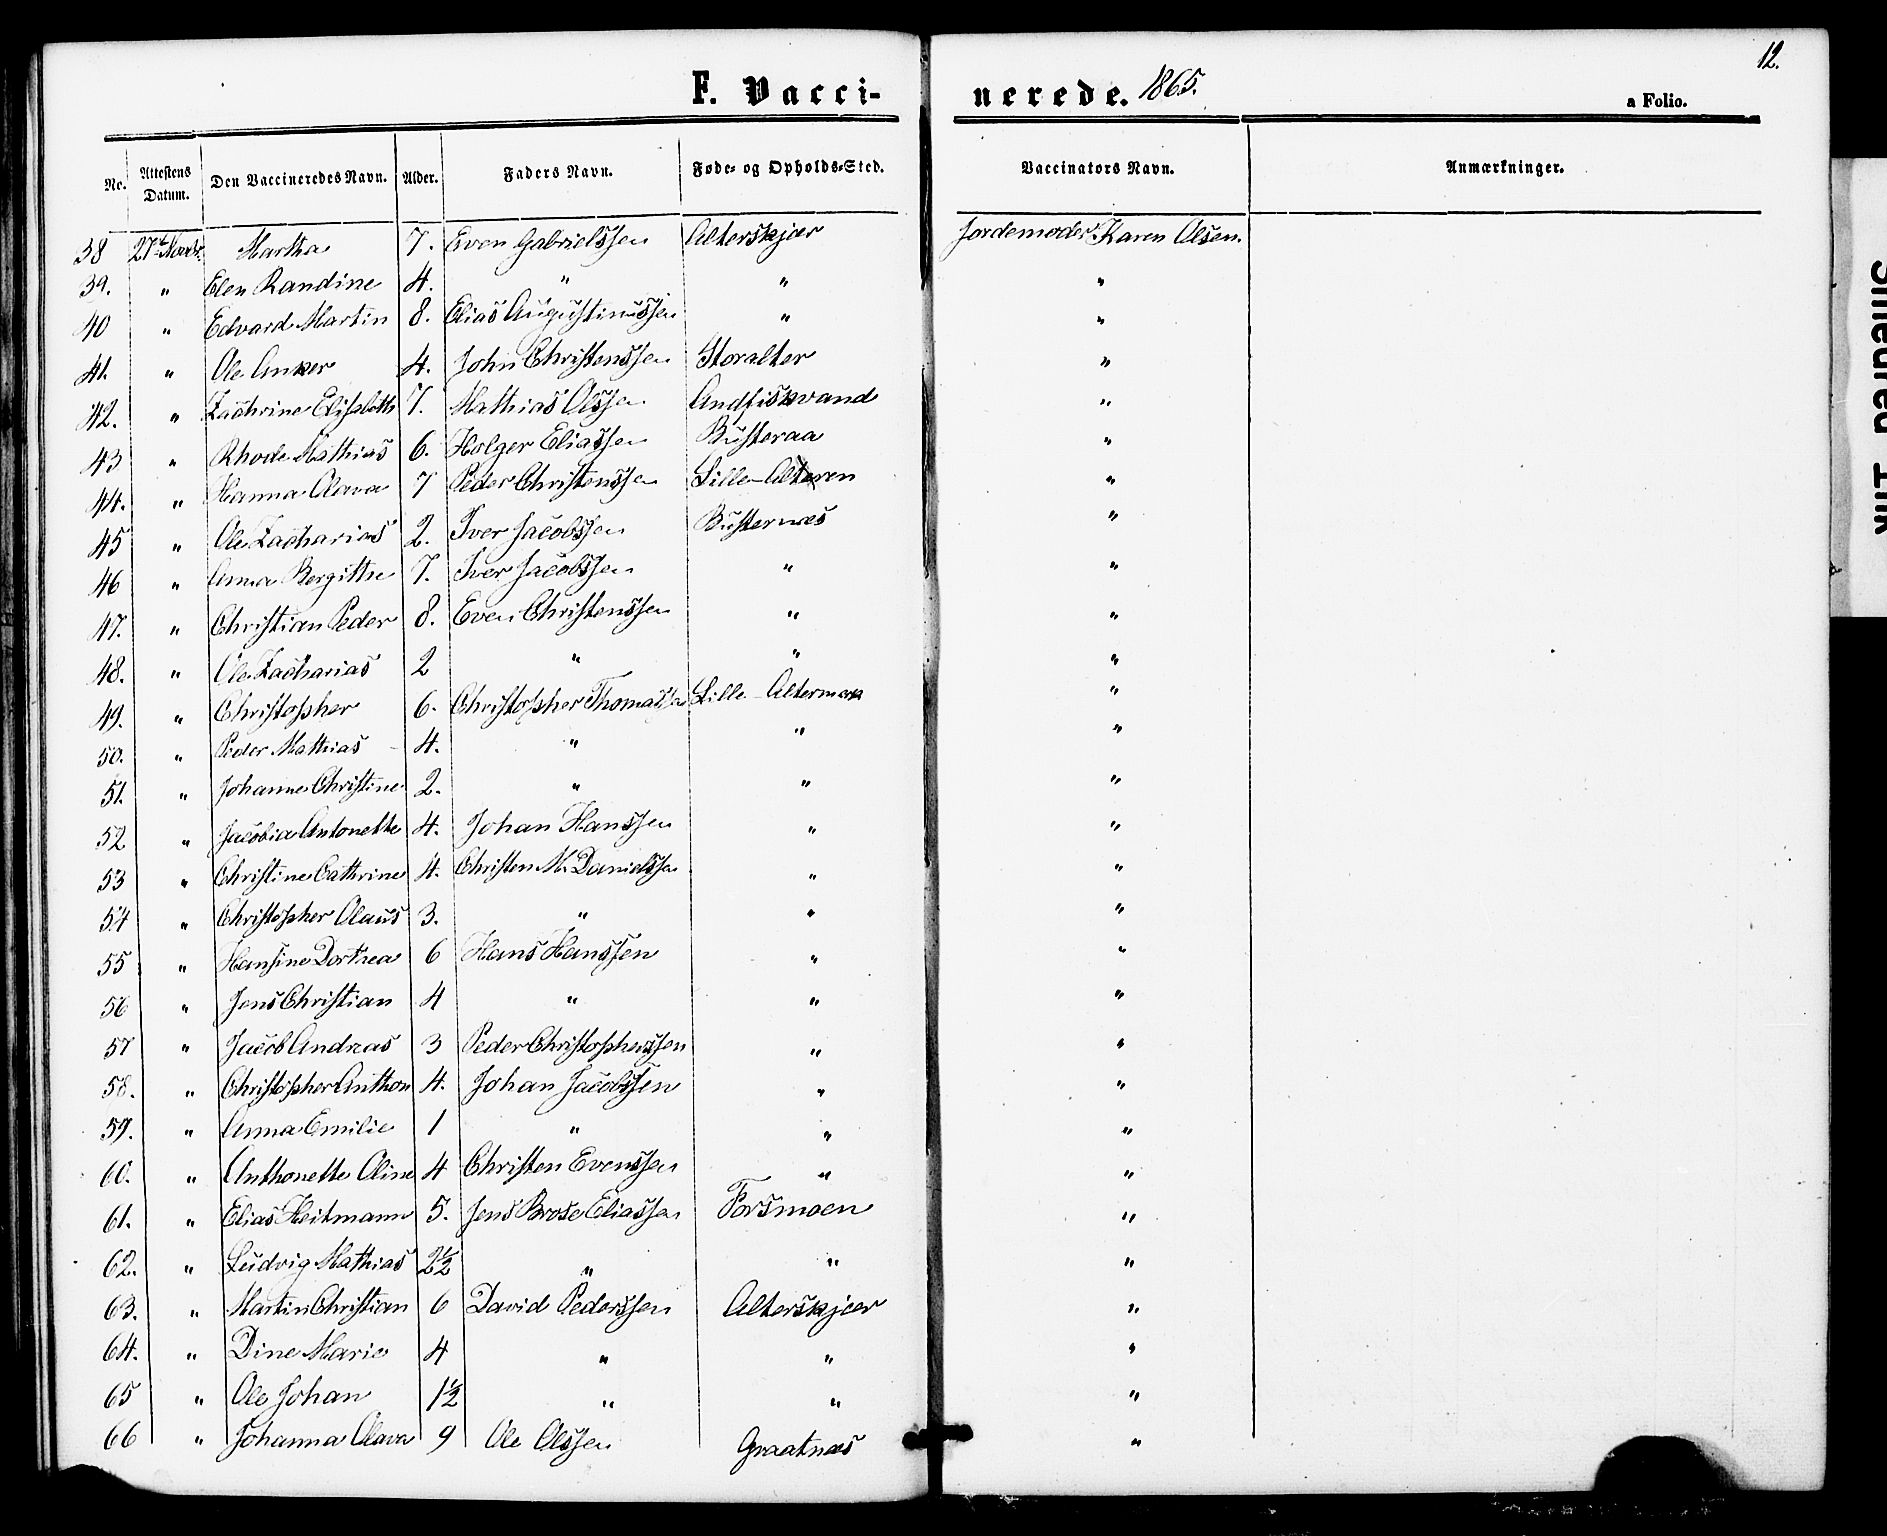 12.
F. Vaccinerede. 1865.
a Folio.
No. Attestens Datum. Den Vaccineredes Navn. Alder. Faders Navn. Føde- og Opholds-Sted. Vaccinators Navn. Anmærkninger.
38 27de Novbr. Martha 7. Even Gabrielssen Alterskjær Jordemoder Karen Olsen.
39. " Elen Randine 4. " " "
40 " Edvard Martin 8. Elias Augustinussen " "
41. " Ole Anker 4. John Christenssen Storalter "
42. " Zachrine Elisabeth 7. Mathias Olssen Andfiskvand "
43 " Rhode Mathias 6. Holger Eliassen Busteraa "
44. " Hanna Olava 7 Peder Christenssen Lille-Alteren "
45 " Ole Zacharias 2. Iver Jacobssen Busternæs "
46 " Anna Bergithe 7. Iver Jacobssen " "
47. " Christian Peder 8. Even Christenssen " "
48. " Ole Zacharias 2 " " "
49. " Christopher 6. Christopher Thomassen Lille-Alteren "
50. " Peder Mathias 4. " " "
51. " Johanne Christine 2. " " "
52 " Jacobia Antonette 4. Johan Hanssen " "
53 " Christine Cathrine 4. Christen M. Danielssen " "
54 " Christopher Olaus 3. " " "
55 " Hansine Dorthea 6 Hans Hanssen " "
56 " Jens Christian 4 " " "
57 " Jacob Andreas 3 Peder Christopherssen " "
58. " Christopher Anthon 4. Johan Jacobssen " "
59. " Anna Emilie 1 " " "
60. " Anthonette Oline 4 Christen Evenssen " "
61. " Elias Heitmann 5. Jens Brose Eliassen Forsmoen "
62. " Ludvig Mathias 2½ " " "
63. " Martin Christian 6 David Pederssen Alterskjær "
64. " Dine Marie 4 " " "
65 " Ole Johan 1½ " " "
66 " Johanna Olava 9 Ole Olssen Graatnæs "